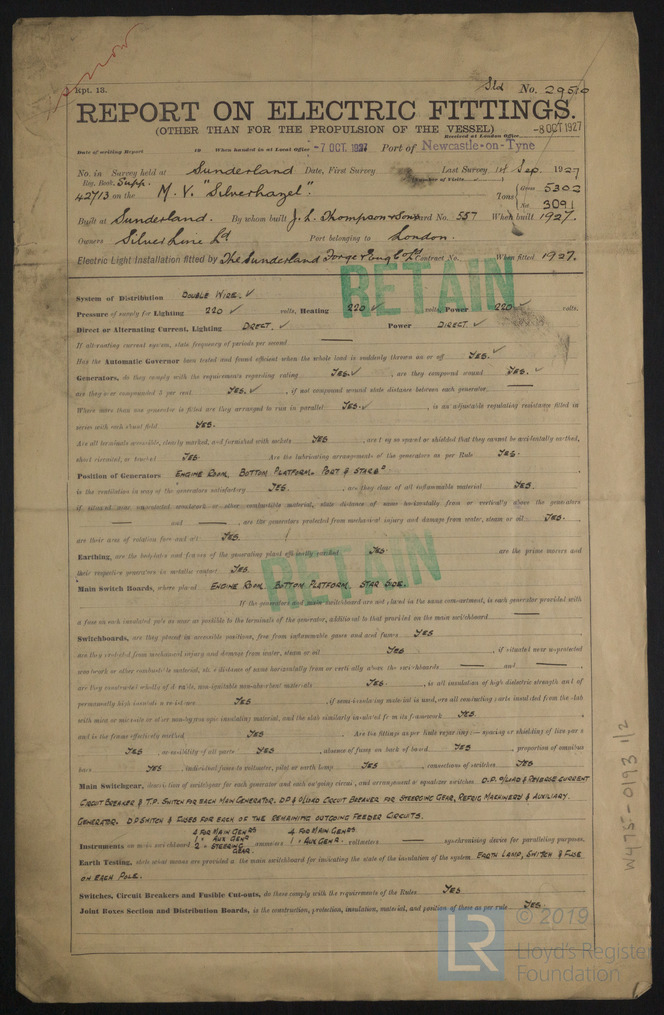 Rpt. 13.
Std No. 29510
REPORT ON ELECTRIC FITTINGS.
(OTHER THAN FOR THE PROPULSION OF THE VESSEL)
Received at London Office -8 OCT 1927
Date of writing Report 19 When handed in at Local Office -7 OCT. 1927 Port of Newcastle-on-Tyne
No. in Survey held at Sunderland Date, First Survey Last Survey 1st Sep. 1927
Reg. Book. Supp. (Number of Visits
42713 on the M.V. "Silverhazel". Tons { Gross 5302
Net 3091
Built at Sunderland. By whom built J. L. Thompson & Sons Yard No. 557 When built 1927.
Owners Silver Line Ld Port belonging to London.
Electric Light Installation fitted by The Sunderland Forge & Eng Co Ld Contract No. When fitted 1927.
RETAIN
System of Distribution DOUBLE WIRE. ✓
Pressure of supply for Lighting 220 ✓ volts, Heating 220 ✓ volts, Power 220 ✓ volts.
Direct or Alternating Current, Lighting DIRECT. ✓ Power DIRECT. ✓
If alternating current system, state frequency of periods per second —
Has the Automatic Governor been tested and found efficient when the whole load is suddenly thrown on or off YES. ✓
Generators, do they comply with the requirements regarding rating YES. ✓, are they compound wound YES. ✓
are they over compounded 5 per cent. YES. ✓, if not compound wound state distance between each generator, —
Where more than one generator is fitted are they arranged to run in parallel YES. ✓, is an adjustable regulating resistance fitted in
series with each shunt field YES.
Are all terminals accessible, clearly marked, and furnished with sockets YES, are they so spaced or shielded that they cannot be accidentally earthed,
short circuited, or touched YES. Are the lubricating arrangements of the generators as per Rule YES.
Position of Generators ENGINE ROOM, BOTTOM PLATFORM. PORT & STARBD
is the ventilation in way of the generators satisfactory YES., are they clear of all inflammable material YES.
if situated near unprotected woodwork or other combustible material, state distance of same horizontally from or vertically above the generators
— and —, are the generators protected from mechanical injury and damage from water, steam or oil YES.
are their axes of rotation fore and aft YES.
Earthing, are the bedplates and frames of the generating plant efficiently earthed YES. are the prime movers and
their respective generators in metallic contact YES.
RETAIN
Main Switch Boards, where placed ENGINE ROOM BOTTOM PLATFORM. STAR SIDE.
If the generators and main switchboard are not placed in the same compartment, is each generator provided with
a fuse on each insulated pole as near as possible to the terminals of the generator, additional to that provided on the main switchboard —
Switchboards, are they placed in accessible positions, free from inflammable gases and acid fumes YES
are they protected from mechanical injury and damage from water, steam or oil YES, if situated near unprotected
woodwork or other combustible material, state distance of same horizontally from or vertically above the switchboards — and —,
are they constructed wholly of durable, non-ignitable non-absorbent materials YES., is all insulation of high dielectric strength and of
permanently high insulation resistance YES, if semi-insulating material is used, are all conducting parts insulated from the slab
with mica or micanite or other non-hygroscopic insulating material, and the slab similarly insulated from its framework YES.
and is the frame effectively earthed YES. Are the fittings as per Rule regarding:— spacing or shielding of live parts
YES, accessibility of all parts YES, absence of fuses on back of board YES, proportion of omnibus
bars YES, individual fuses to voltmeter, pilot or earth lamp YES, connections of switches YES
Main Switchgear, description of switchgear for each generator and each outgoing circuit, and arrangement of equalizer switches D.P. O/LOAD & REVERSE CURRENT
CIRCUIT BREAKER & T.P. SWITCH FOR EACH MAIN GENERATOR. D.P & O/LOAD CIRCUIT BREAKER FOR STEERING GEAR, REFRIG MACHINERY & AUXILIARY.
GENERATOR. D.P. SWITCH & FUSES FOR EACH OF THE REMAINING OUTGOING FEEDER CIRCUITS.
4 FOR MAIN GENRS 4 FOR MAIN GENRS
Instruments on main switchboard 1 " AUX GENR ammeters 1 " AUX GENR. voltmeters — synchronising device for paralleling purposes.
2 " STEERING GEAR.
Earth Testing, state what means are provided at the main switchboard for indicating the state of the insulation of the system EARTH LAMP, SWITCH & FUSE
ON EACH POLE.
Switches, Circuit Breakers and Fusible Cut-outs, do these comply with the requirements of the Rules YES
Joint Boxes Section and Distribution Boards, is the construction, protection, insulation, material, and position of these as per rule YES.
W475-0193 1/2
LR
© 2019
Lloyd's Register
Foundation